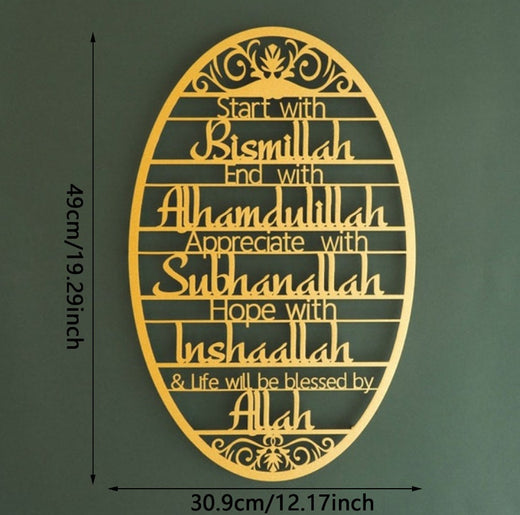 Start with
Bismillah
End with
Alhamdulillah
Appreciate with
Subhanallah
Hope with
Inshaallah
& Life will be blessed by
Allah
49cm/19.29inch
30.9cm/12.17inch